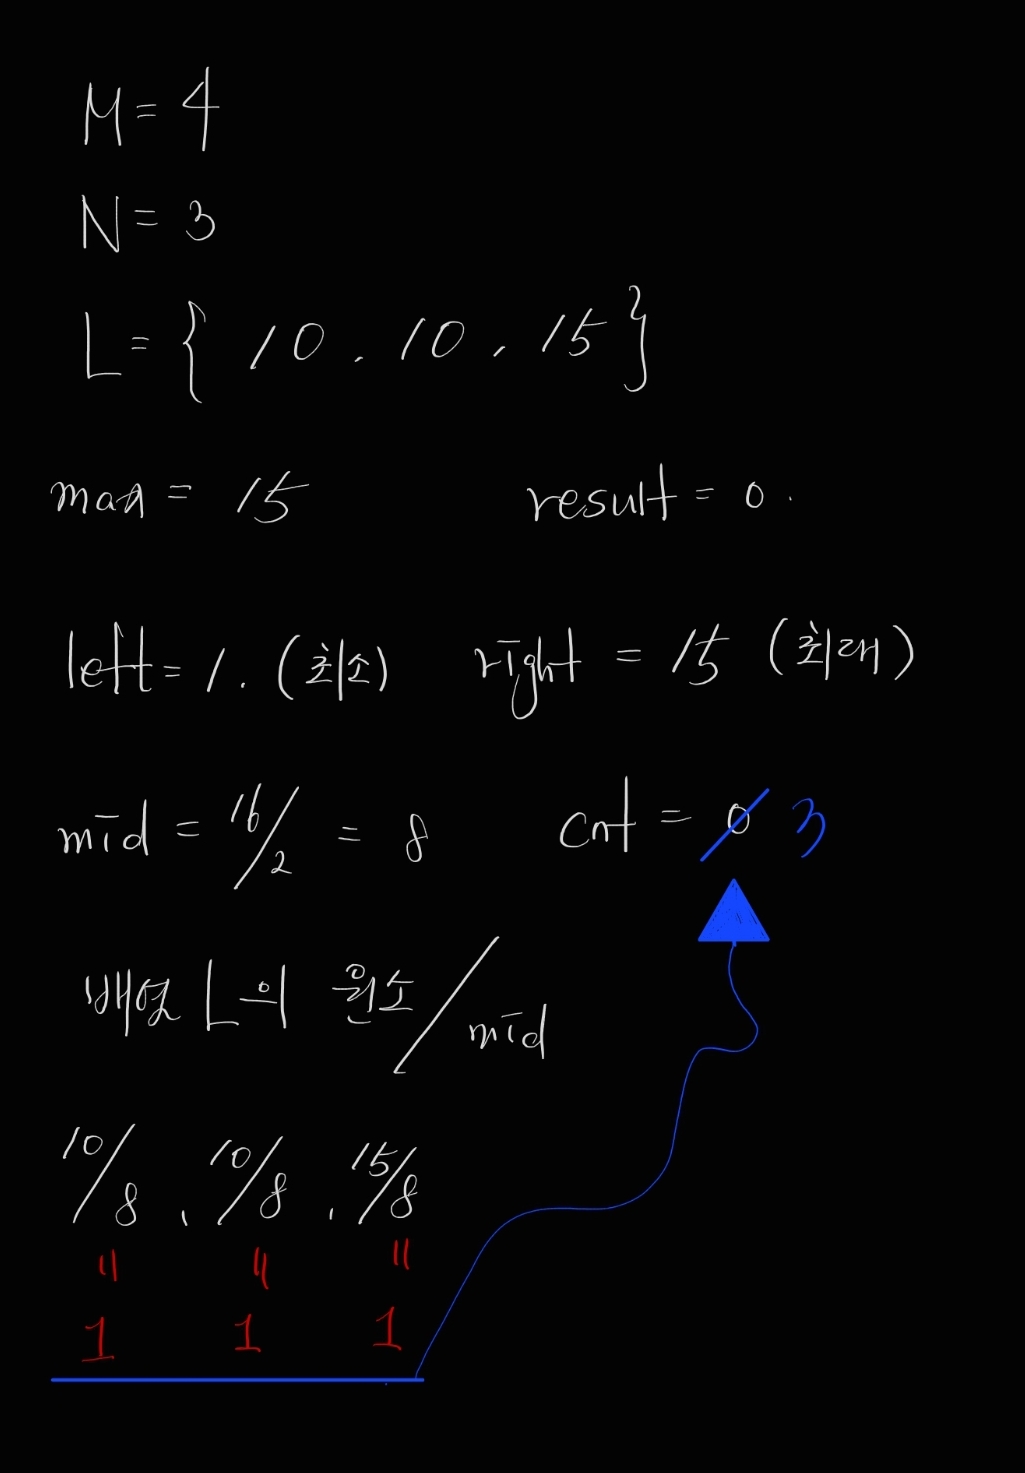 M = 4
N = 3
L = { 10 . 10 , 15 }
max = 15 result = 0 .
left = 1 . (최소) right = 15 (최대)
mid = 16/2 = 8 cnt = 0 3
배열 L의 원소/mid
10/8 , 10/8 , 15/8
= = =
1 1 1